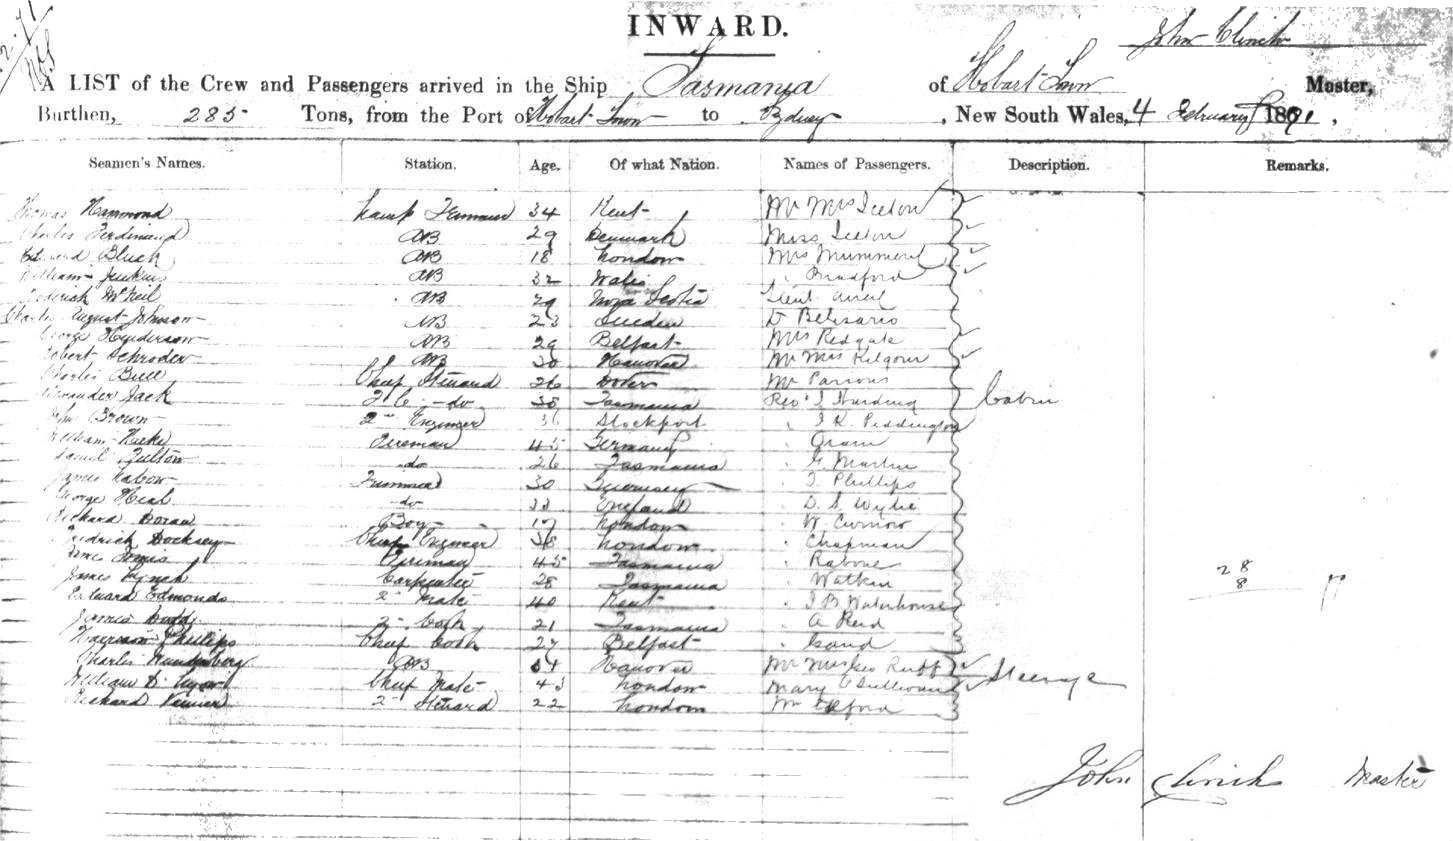 INWARD.
John Clinch
A LIST of the Crew and Passengers arrived in the Ship Tasmania of Hobart Town Master,
Burthen, 285 Tons, from the Port of Hobart Town to Sydney, New South Wales, 4 February 1871,
Seamen's Names. Station. Age. Of what Nation. Names of Passengers. Description. Remarks.
Thomas Hammond 34 Kent Mr Mrs
Charles Ferdinand AB 29 Denmark Miss
AB 18 London Mrs
William Jenkins AB 32 Wales " Bradford
McNeil AB 29 Nova Scotia Lieut
Charles August Johnson AB 23 Sweden D Belisario
George Henderson AB 29 Belfast Mrs Redgate
Robert Schroder AB 30 Hanover Mr Mrs Kilgour
Charles Bull Chief Steward 26 Dover Mr Parsons
Alexander Jack do 38 Tasmania Revd J Harding Cabin
John Brown 2nd Engineer Stockport " J K Piddington
William Fireman 45 Germany " Oram
Daniel Fulton do 26 Tasmania " G Martin
James Trimmer 30 Guernsey " T Phillips
George Neal do 33 England " D. S. Wylie
Richard Doran Boy 17 London " W. Curnow
Fredrick Docksey Chief Engineer 38 London " Chapman
James Fireman 45 Tasmania " Rabone
James Lynch Carpenter 28 Tasmania " Watkin
28
8
Edward Edmonds 2nd Mate 40 Kent " J B Waterhouse
James Dodd 2nd Cook 21 Tasmania " A Reid
Harrison Phillips Chief Cook 27 Belfast " Gaud
Charles AB 34 Hanover Mr Mrs Geo Ruff
William D. Chief Mate 43 London Mary O'Sullivan Steerage
Richard 2nd Steward 22 London Mr
John Clinch Master